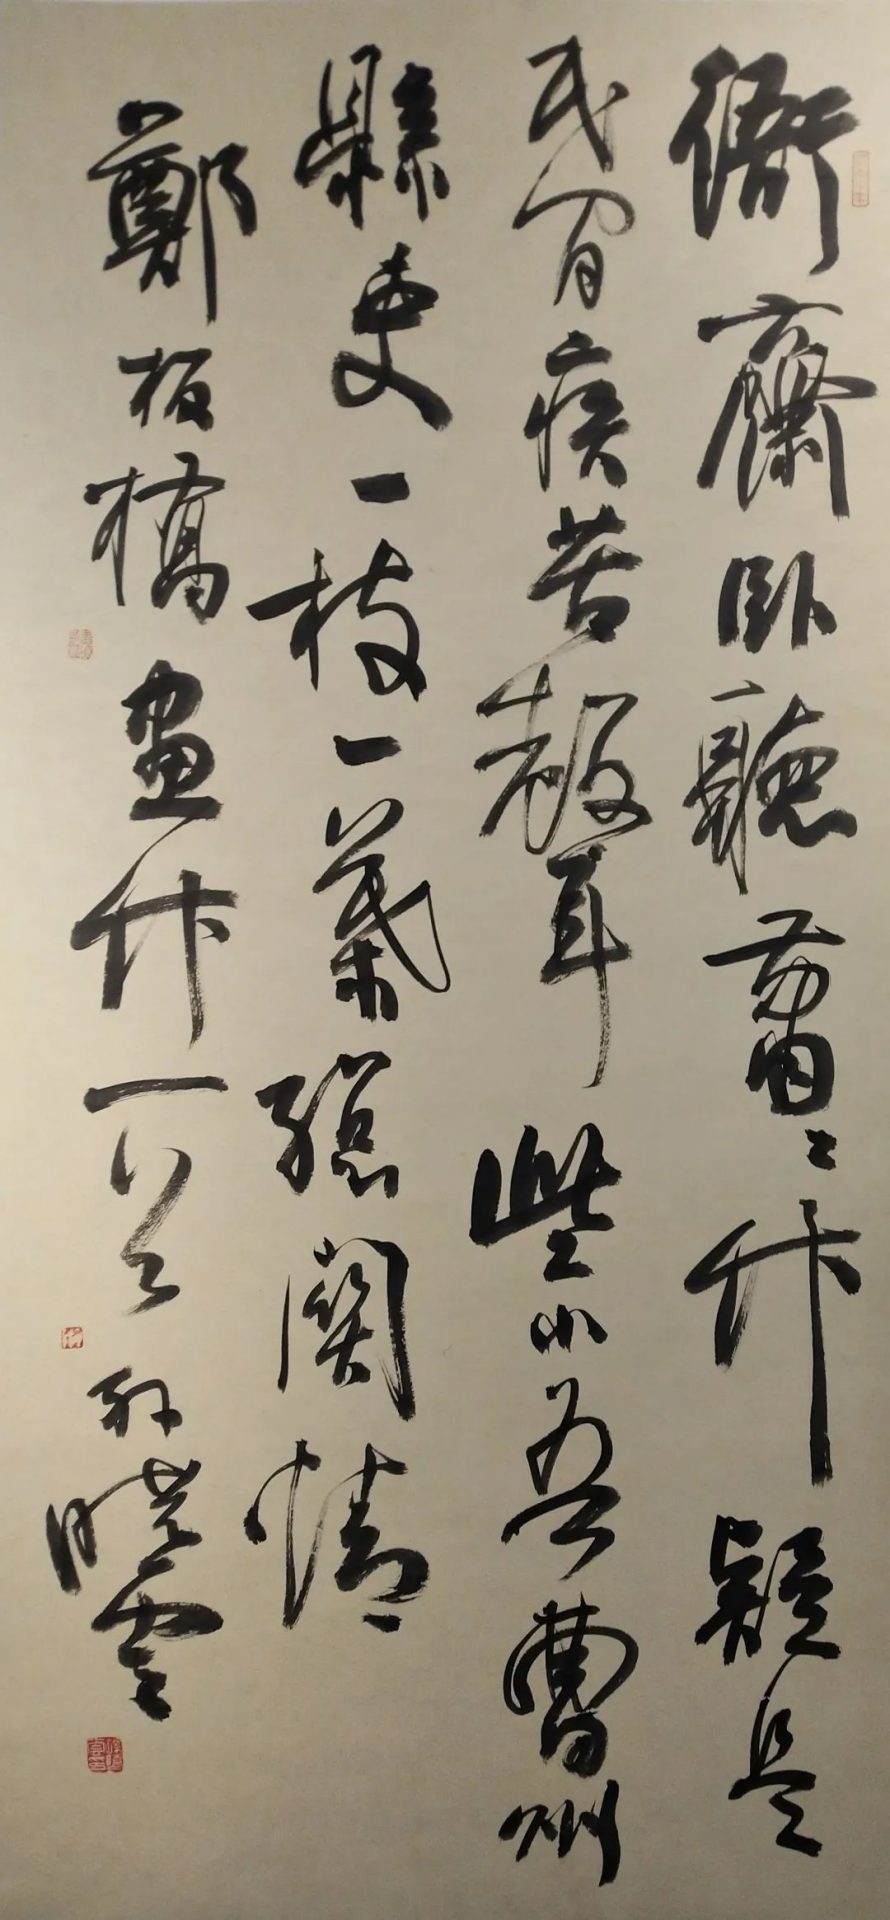 衙齋卧聽蕭〻竹疑是
民間疾苦聲些小吾曹州
縣吏一枝一葉總關情
鄭板橋畫竹一首 孙曉雲